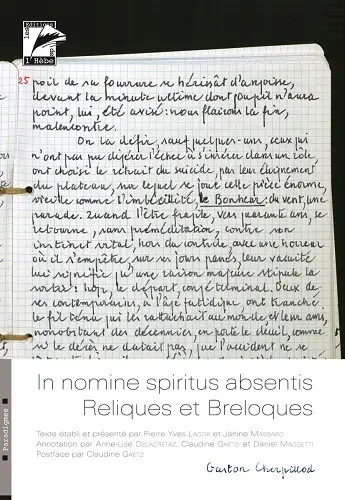 Les Editions
l'Hèbe
25 poil de sa fourrure se hérisât d'angoisse,
devant la minute ultime dont n'aura
point, lui, été avisé : nous flairons la fin,
malencontre.
On la défie, sauf quelques-uns, ceux qui
n'ont pas pu digérer l'échec à s'insérer dans un rôle,
ont choisi le retrait du suicide, par leur
du plateau, sur lequel se joue cette pièce énorme,
vieille comme l'imbécillité, le Bonheur : du vent, une
parade. Quand l'être, vers quarante ans, se
retourne, sans préméditation, contre son
instinct vital, hors du contrôle, avec une horreur
où il s'empêtre, sur ses jours passés, leur vacuité
lui signifie qu'une raison majeure stipule la
sortie : hop, le départ, congé terminal. Deux de
ses contemporains, à l'âge fatidique ont tranché
le fil ténu qui les rattachait au monde et leur ami,
nonobstant des décennies, en porte le deuil, comme
si le décès ne datait pas, que l'accident ne se
In nomine spiritus absentis
Reliques et Breloques
Texte établi et présenté par Pierre Yves Lador et Janine Massard
Annotation par Anne-Lise Delacrétaz, Claudine Gaetzi et Daniel Maggetti
Postface par Claudine Gaetzi
Gaston Cherpillod
Paradigmes